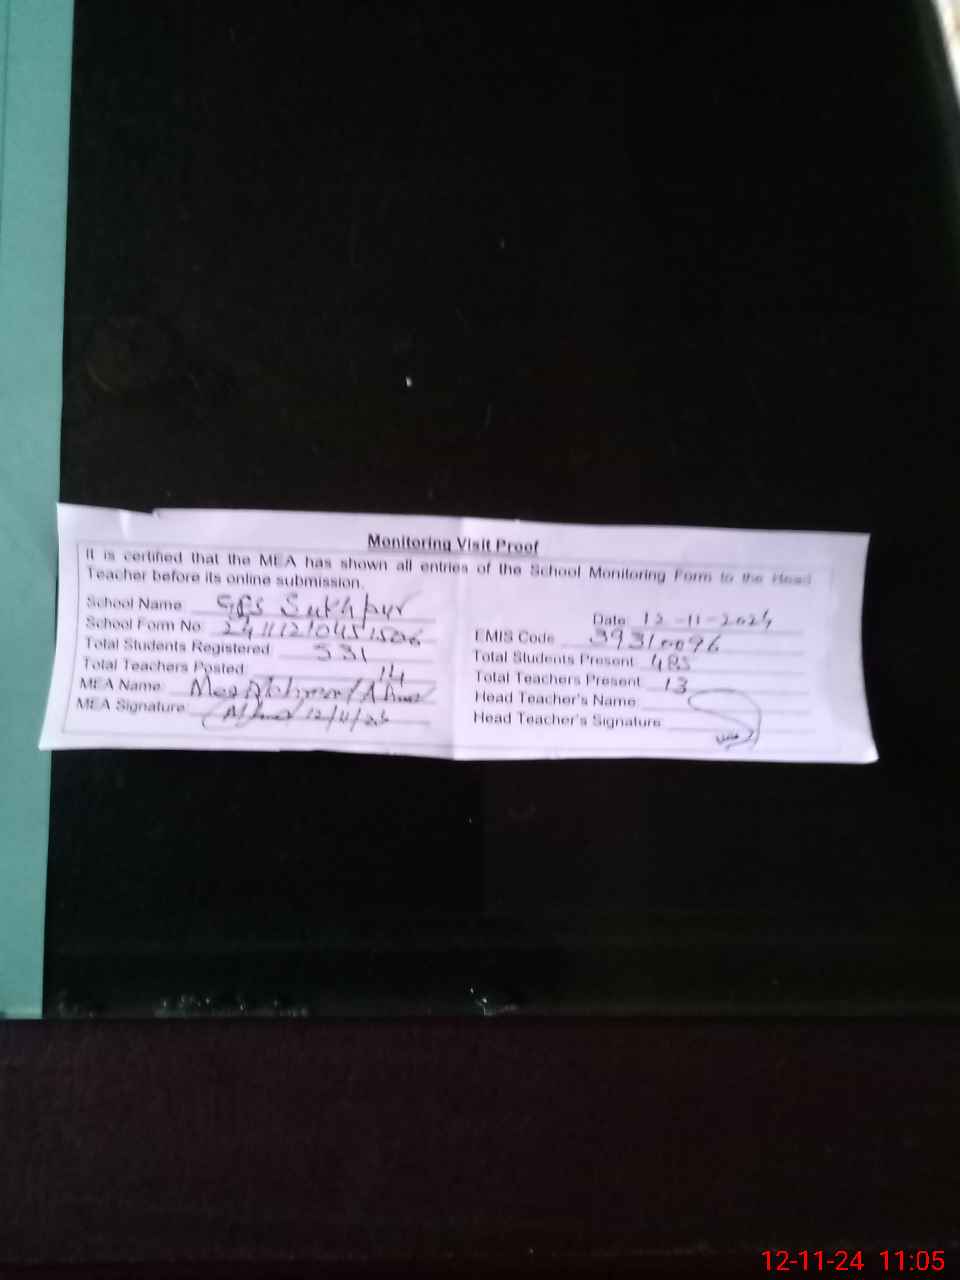 Monitoring Visit Proof
It is certified that the MEA has shown all entries of the School Monitoring Form to the Head
Teacher before its online submission.
School Name GPS Sukhpur
Date 12-11-2024
School Form No
EMIS Code 39310096
Total Students Registered 531
Total Students Present 485
Total Teachers Posted 14
Total Teachers Present 13
MEA Name
Head Teacher's Name
MEA Signature
Head Teacher's Signature
12-11-24 11:05